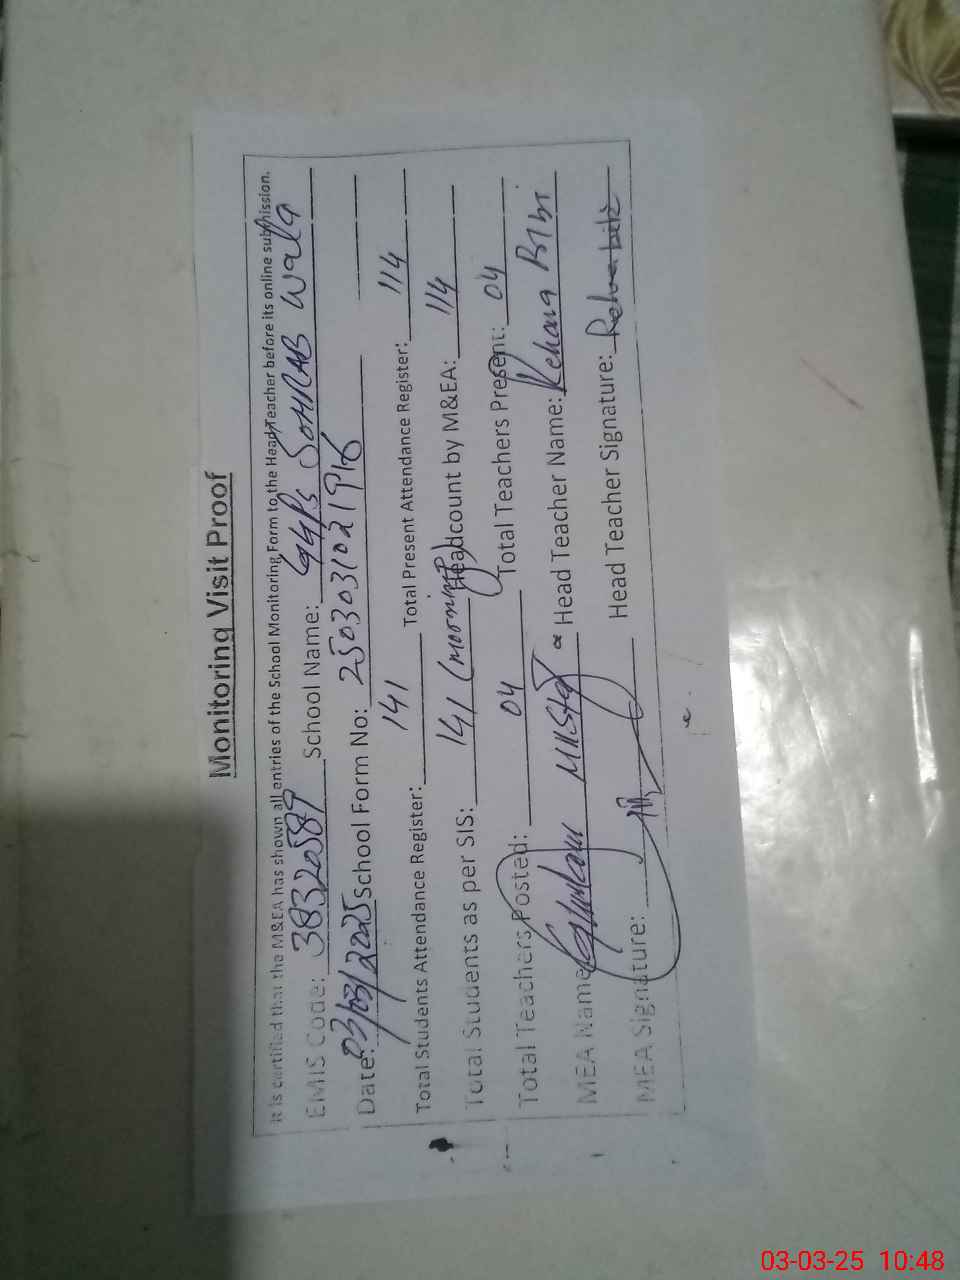 Monitoring Visit Proof
It is certified that the M&EA has shown all entries of the School Monitoring Form to the Head Teacher before its online submission.
EMIS Code: 38320589 School Name: GGPS SOHRAB Wala
Date: 03/03/2025 School Form No: 250303102191
Total Students Attendance Register: 141 Total Present Attendance Register: 114
Total Students as per SIS: 141 (morning) Headcount by M&EA: 114
Total Teachers Posted: 04 Total Teachers Present: 04
MEA Name: Ghulam Mustafa Head Teacher Name: Rehana Bibi
MEA Signature: Head Teacher Signature: Rehana bibi
03-03-25 10:48